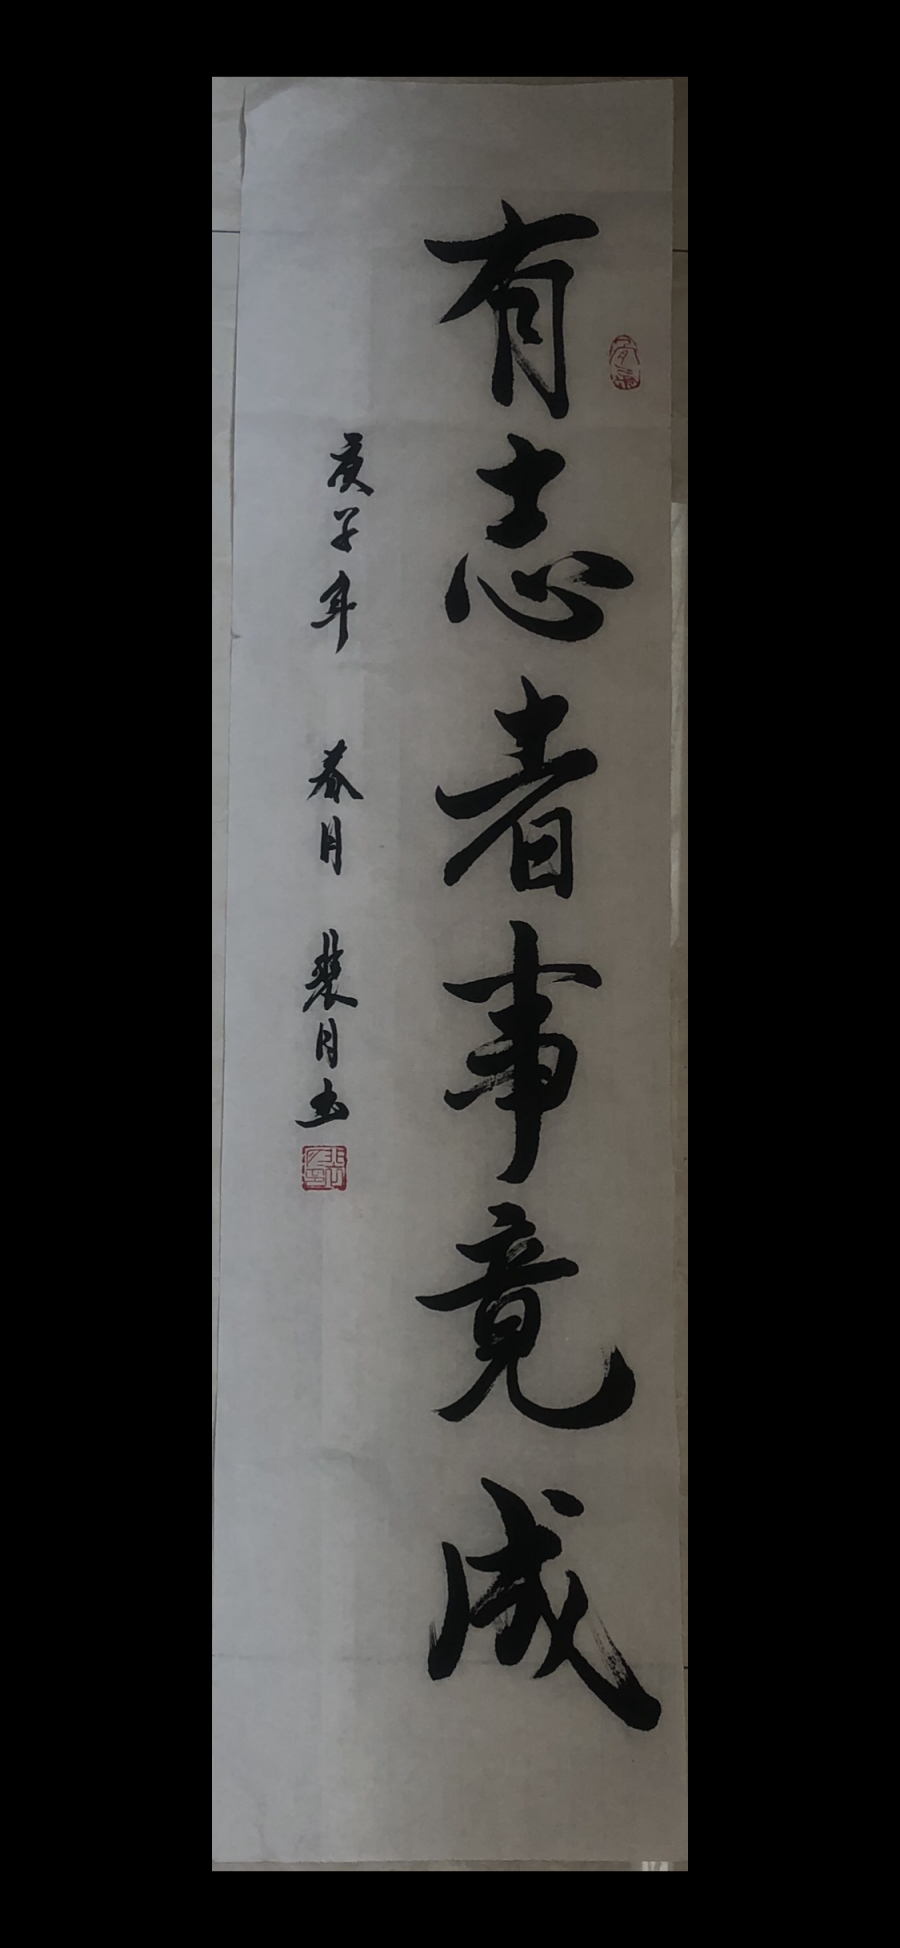 有志者事竟成
庚子年 春月 裴月书